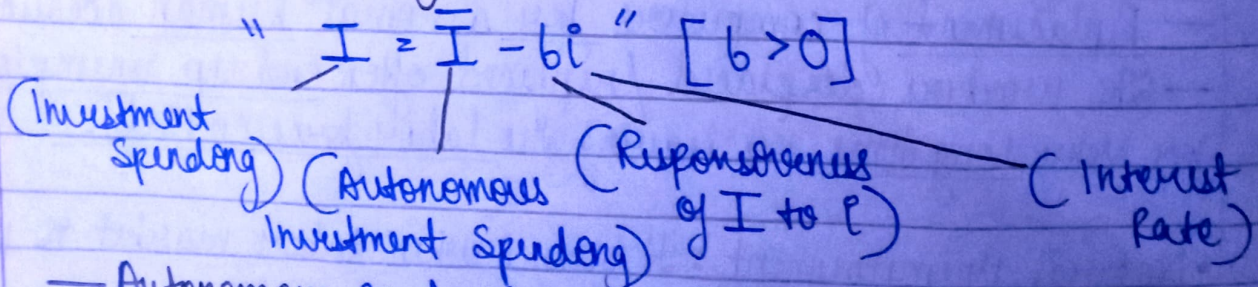 " I = Ī - bi " [b > 0]
(Investment Spending)
(Autonomous Investment Spending)
(Responsiveness of I to i)
(Interest Rate)
— Autonomous